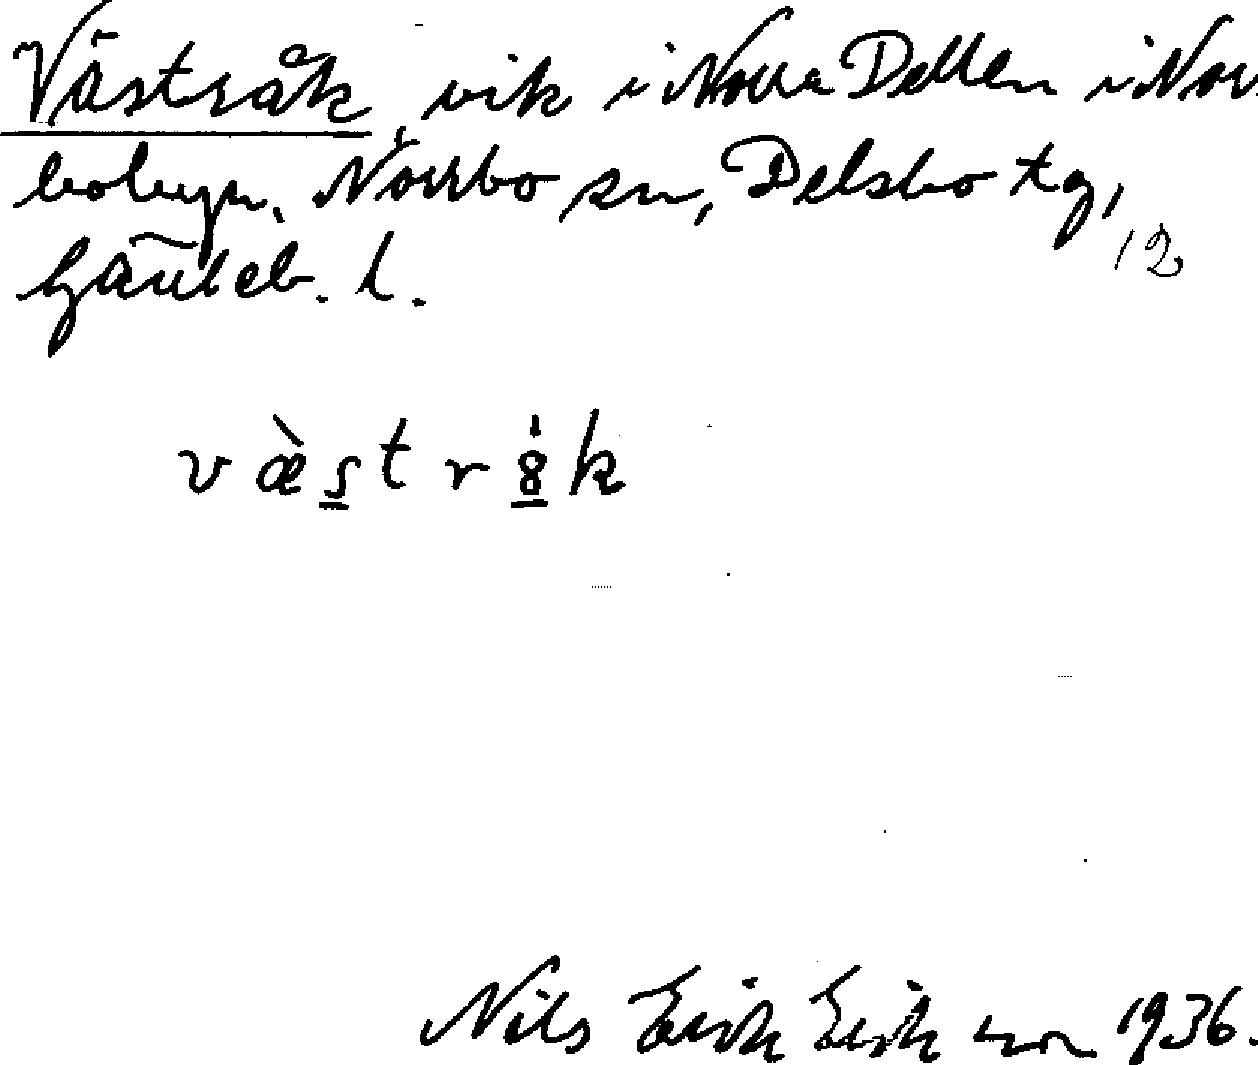 Västråk, vik i Norra Dellen i Norr
bobyn, Norrbo sn, Delsbo tg,
Gävleb. l.
12
v æ̀ s̲ t r 8̲ k
Nils Erik Eriksson 1936.